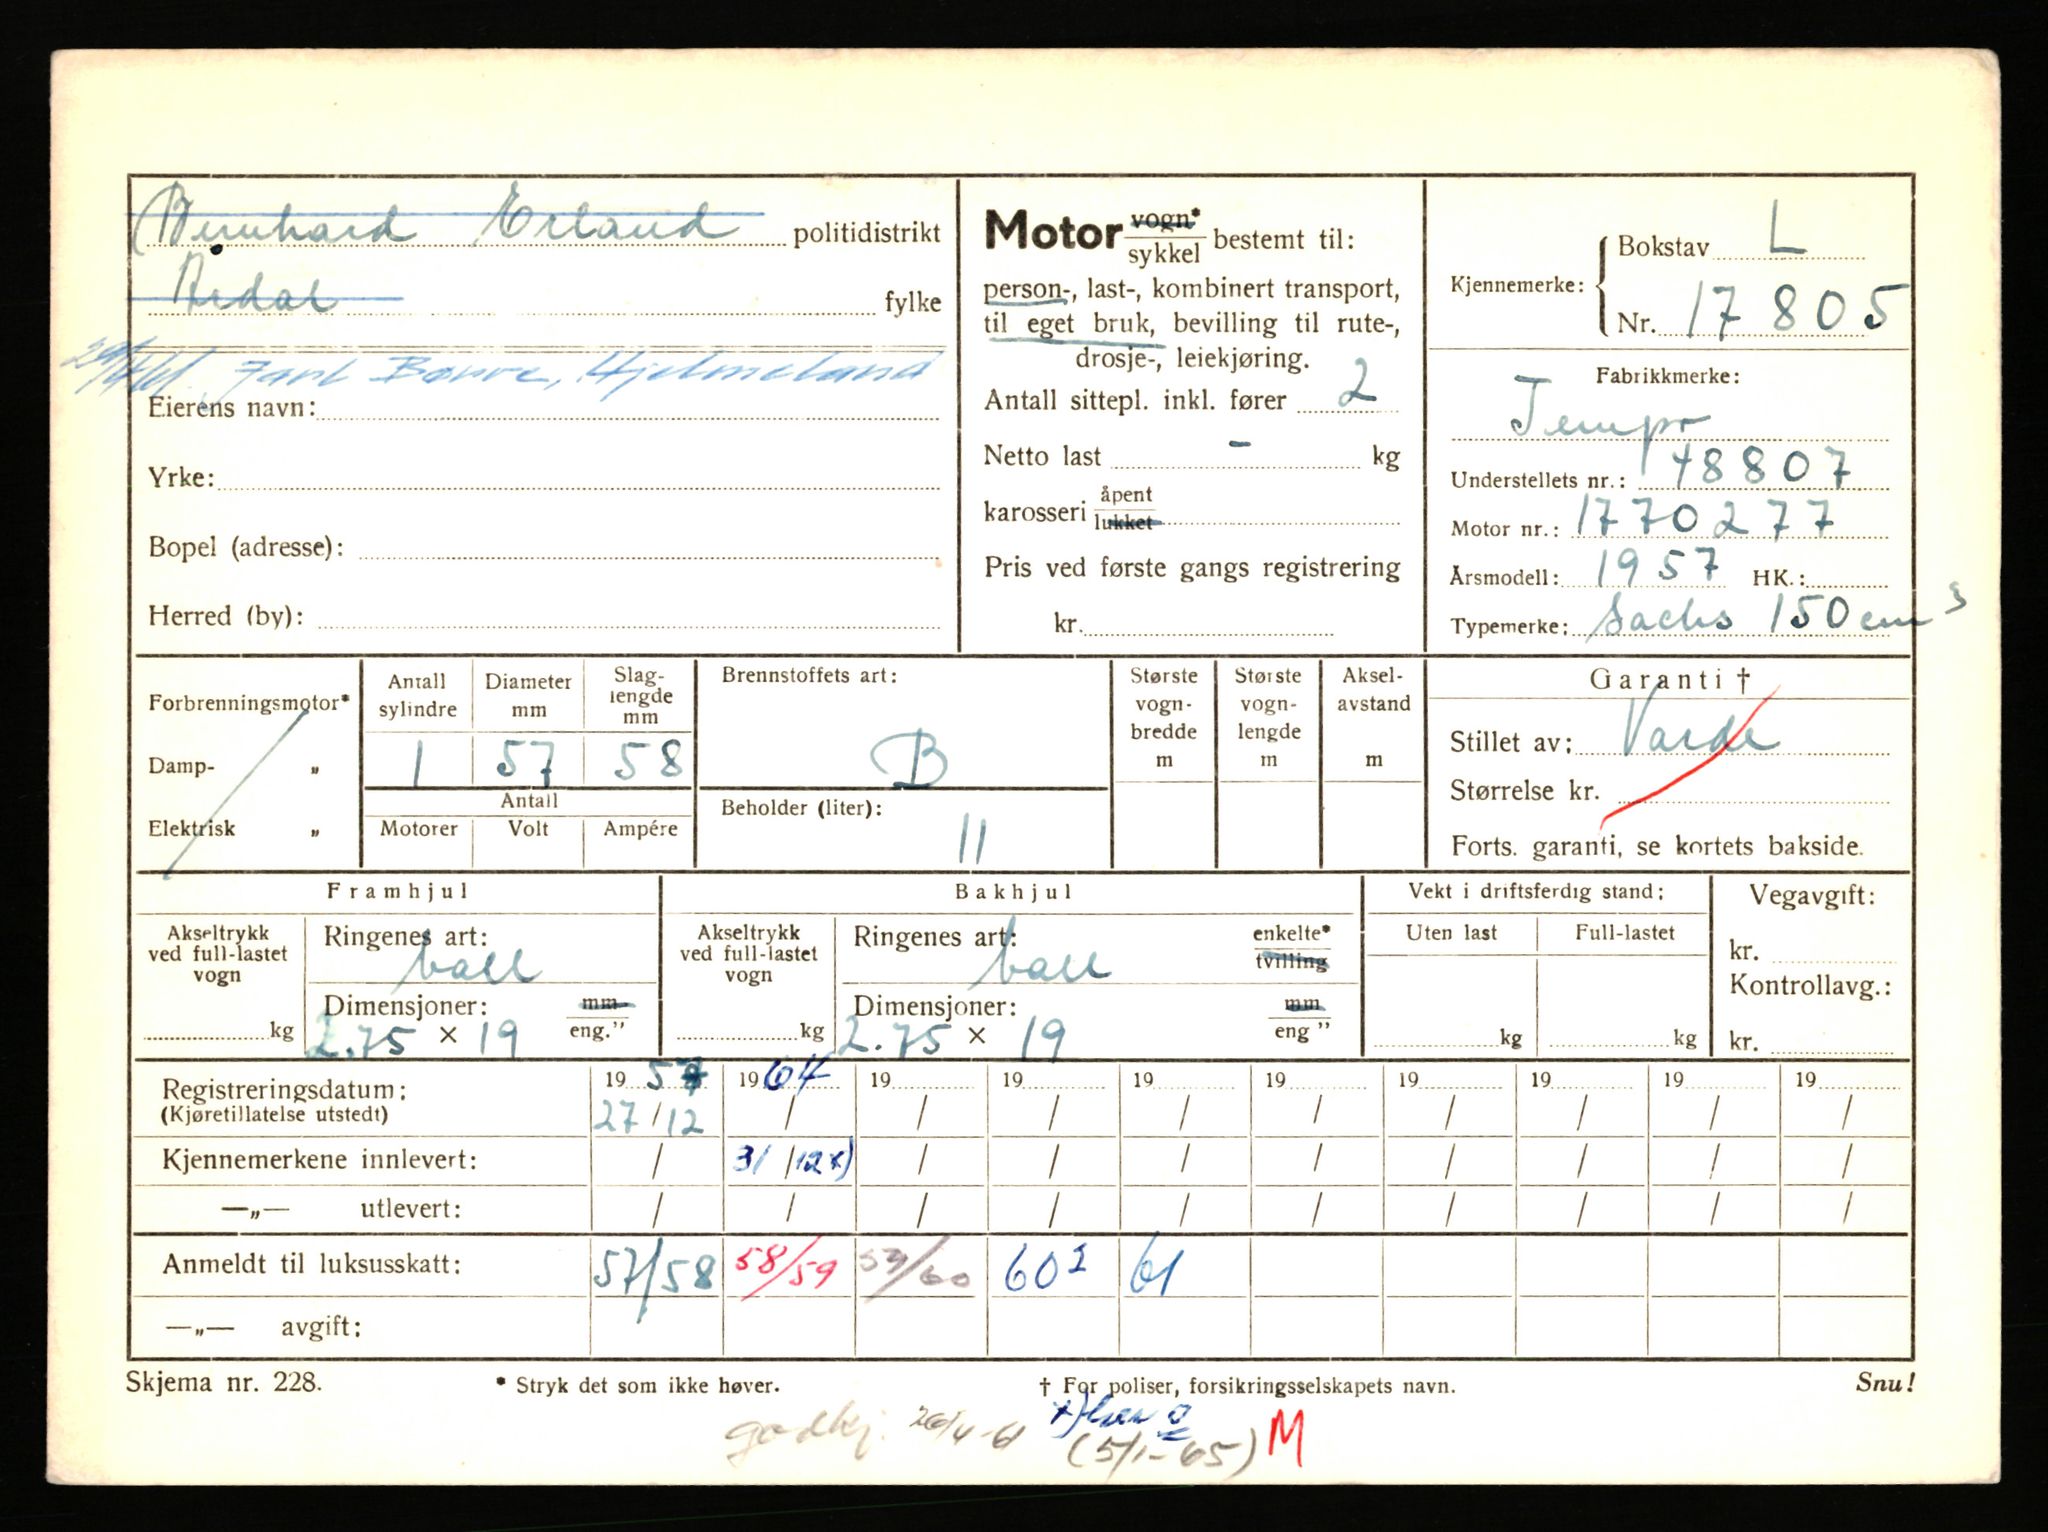 Bernhard Erland politidistrikt
Årdal fylke
29/4-61. Jarl Børve, Hjelmeland
Eierens navn:
Yrke:
Bopel (adresse):
Herred (by):
Motor vogn*
sykkel bestemt til:
person-, last-, kombinert transport,
til eget bruk, bevilling til rute-,
drosje-, leiekjøring.
Antall sittepl. inkl. fører 2
Netto last - kg
karosseri åpent
lukket
Pris ved første gangs registrering
kr.
Kjennemerke: Bokstav L
Nr. 17805
Fabrikkmerke:
Tempo
Understellets nr.: 48807
Motor nr.: 1770277
Årsmodell: 1957 HK.:
Typemerke: Sachs 150 cm³
Forbrenningsmotor*
Damp- „
Elektrisk „
Antall sylindre 1
Diameter mm 57
Slaglengde mm 58
Antall
Motorer Volt Ampére
Brennstoffets art:
B
Beholder (liter):
11
Største vognbredde m
Største vognlengde m
Akselavstand m
Garanti †
Stillet av: Varde
Størrelse kr.
Forts. garanti, se kortets bakside.
Framhjul
Akseltrykk ved full-lastet vogn
kg
Ringenes art:
ball
Dimensjoner: mm
2.75 × 19 eng.”
Bakhjul
Akseltrykk ved full-lastet vogn
kg
Ringenes art: enkelte*
ball tvilling
Dimensjoner: mm
2.75 × 19 eng ”
Vekt i driftsferdig stand:
Uten last Full-lastet
kg kg
Vegavgift:
kr.
Kontrollavg.:
kr.
Registreringsdatum: 19 57 19 64 19 19 19 19 19 19 19 19
(Kjøretillatelse utstedt) 27/12 / / / / / / / / /
Kjennemerkene innlevert: / 31/12x) / / / / / / / /
—„— utlevert: / / / / / / / / / /
Anmeldt til luksusskatt: 57/58 58/59 59/60 60² 61
—„— avgift:
Skjema nr. 228. * Stryk det som ikke høver. † For poliser, forsikringsselskapets navn. Snu!
godkj. 26/4-61 x)
(5/1-65) M